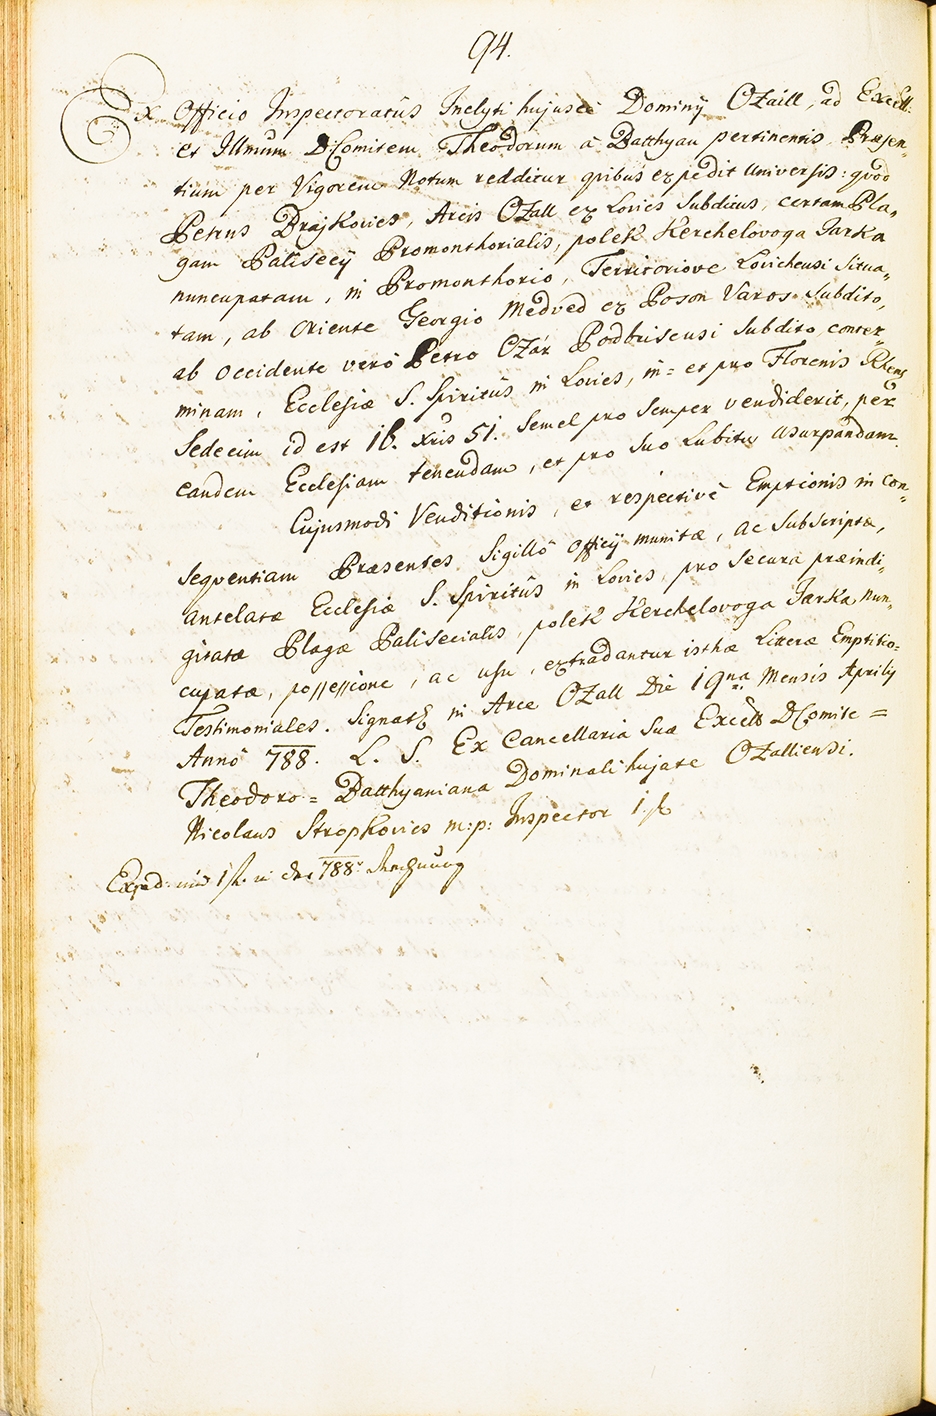 94.
Ex Officio Inspectoratûs Inclyti hujusce Dominÿ Ozaill, ad Excell.
et Illmum D. Comitem Theodorum à Batthyan pertinentis, Præsen„
tium per Vigorem Notum redditur qvibus expedit Universis: qvod
Petrus Drajkovics, Arcis Ozall ex Lovics Subditus, certam Pla„
gam Palisecÿ Promonthorialis, polek Kerchelovoga Jarka
nuncupatam, in Promonthorio, Territoriove Lovichensi Situa„
tam, ab Oriente Georgio Medved ex Poson Varos Subdito,
ab Occidente verò Petro Ozár Podbrisensi Subdito, conter„
minam, Ecclesiæ S. Spiritûs in Lovics, in= et pro Florenis Rhens
Sedecim id est 16. Xris 51. Semel pro Semper vendiderit, per
eandem Ecclesiam tenendam, et pro Suo Lubitu usurpandam.
Cujusmodi Venditionis, et respectivè Emptionis in Con„
seqventiam Præsentes Sigillô Officÿ munitæ, ac Subscriptæ,
antelatæ Ecclesiæ S. Spiritûs in Lovics, pro Secura præindi„
gitatæ Plagæ Palisecialis, polek Kerchelovoga Jarka nun„
cupatæ, possessione, ac usu, extradantur isthæ Literæ Emptitio=
Testimoniales. Signatæ in Arce Ozall Die 19na Mensis Aprilÿ
Annô 788. L. S. Ex Cancellaria Suæ Excells D. Comite =
Theodoro = Batthyaniana Dominali hujate Ozalliensi.
Nicolaus Stropkovics m:p: Inspector
Exped: 788